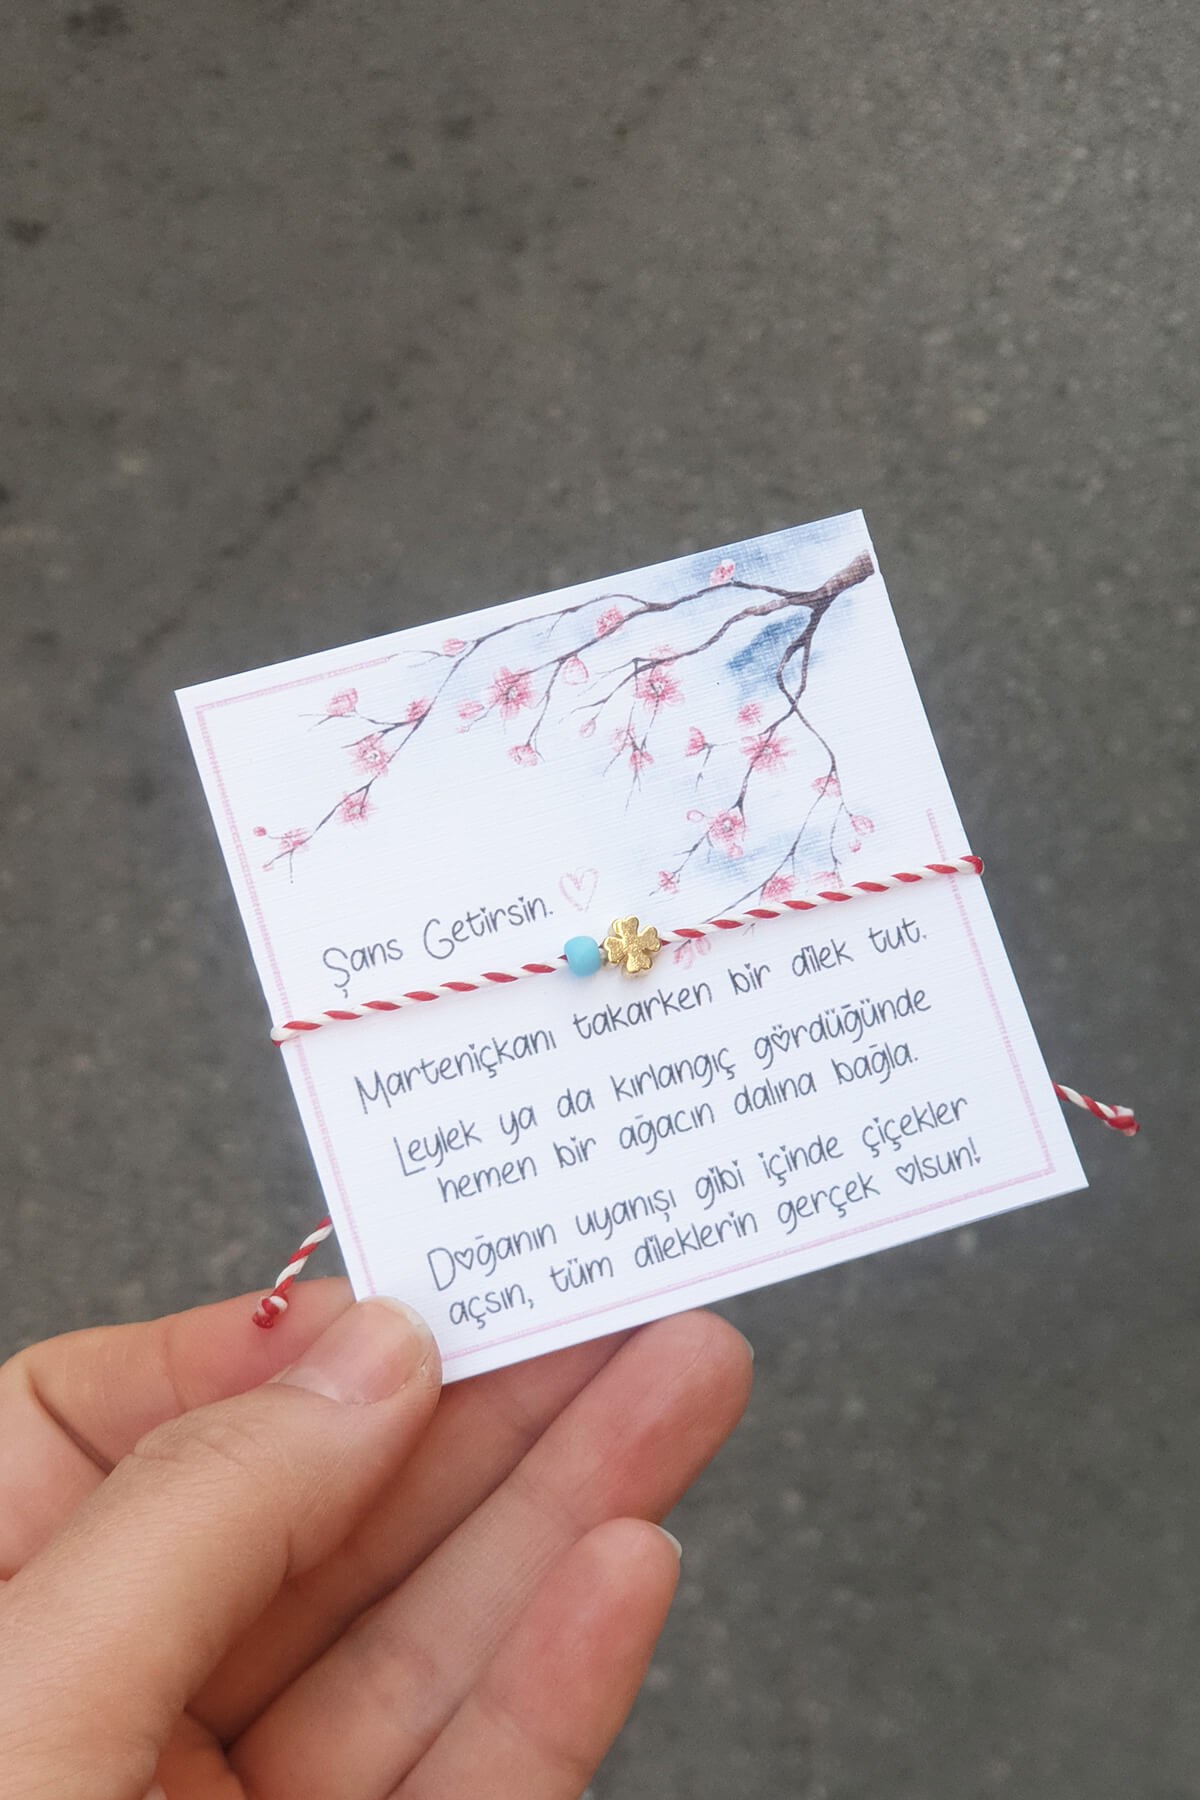 Şans Getirsin.
Marteniçkanı takarken bir dilek tut.
Leylek ya da kırlangıç gördüğünde
hemen bir ağacın dalına bağla.
Doğanın uyanışı gibi içinde çiçekler
açsın, tüm dileklerin gerçek olsun!